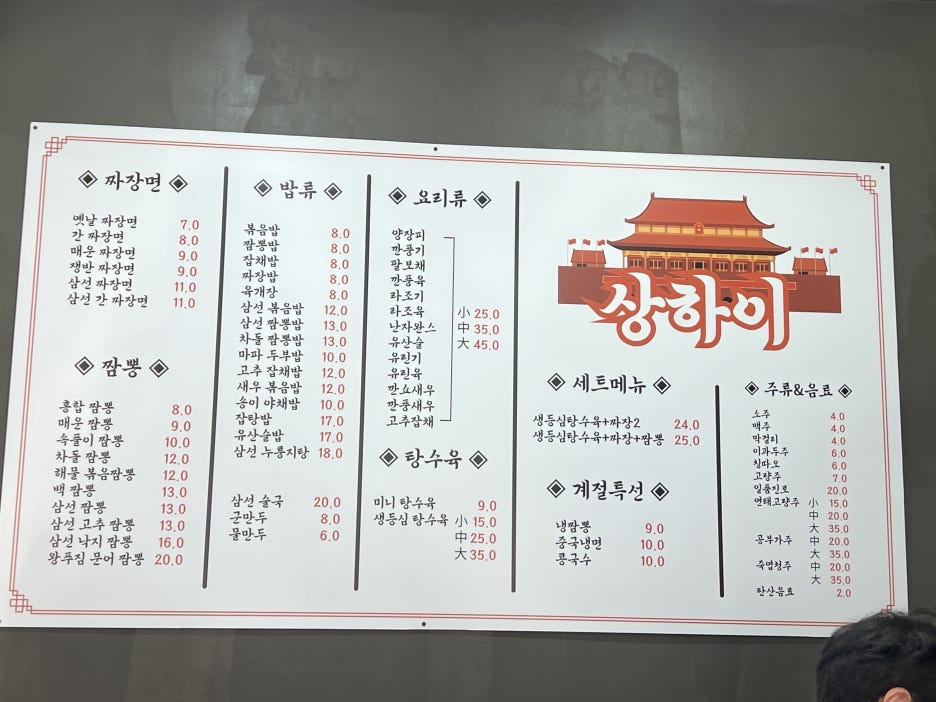 ◈ 짜장면 ◈
옛날 짜장면 7.0
간 짜장면 8.0
매운 짜장면 9.0
쟁반 짜장면 9.0
삼선 짜장면 11.0
삼선 간 짜장면 11.0
◈ 짬뽕 ◈
홍합 짬뽕 8.0
매운 짬뽕 9.0
속풀이 짬뽕 10.0
차돌 짬뽕 12.0
해물 볶음짬뽕 12.0
백 짬뽕 13.0
삼선 짬뽕 13.0
삼선 고추 짬뽕 13.0
삼선 낙지 짬뽕 16.0
왕푸짐 문어 짬뽕 20.0
◈ 밥류 ◈
볶음밥 8.0
짬뽕밥 8.0
잡채밥 8.0
짜장밥 8.0
육개장 8.0
삼선 볶음밥 12.0
삼선 짬뽕밥 13.0
차돌 짬뽕밥 13.0
마파 두부밥 10.0
고추 잡채밥 12.0
새우 볶음밥 12.0
송이 야채밥 10.0
잡탕밥 17.0
유산슬밥 17.0
삼선 누룽지탕 18.0
삼선 술국 20.0
군만두 8.0
물만두 6.0
◈ 요리류 ◈
양장피
깐풍기
팔보채
깐풍육
라조기
라조육 小 25.0
난자완스 中 35.0
유산슬 大 45.0
유린기
유린육
깐쇼새우
깐풍새우
고추잡채
◈ 탕수육 ◈
미니 탕수육 9.0
생등심 탕수육 小 15.0
中 25.0
大 35.0
상하이
◈ 세트메뉴 ◈
생등심탕수육+짜장2 24.0
생등심탕수육+짜장+짬뽕 25.0
◈ 계절특선 ◈
냉짬뽕 9.0
중국냉면 10.0
콩국수 10.0
◈ 주류&음료 ◈
소주 4.0
맥주 4.0
막걸리 4.0
이과두주 6.0
칭따오 6.0
고량주 7.0
일품진로 20.0
연태고량주 小 15.0
中 20.0
大 35.0
공부가주 中 20.0
大 35.0
죽엽청주 中 20.0
大 35.0
탄산음료 2.0